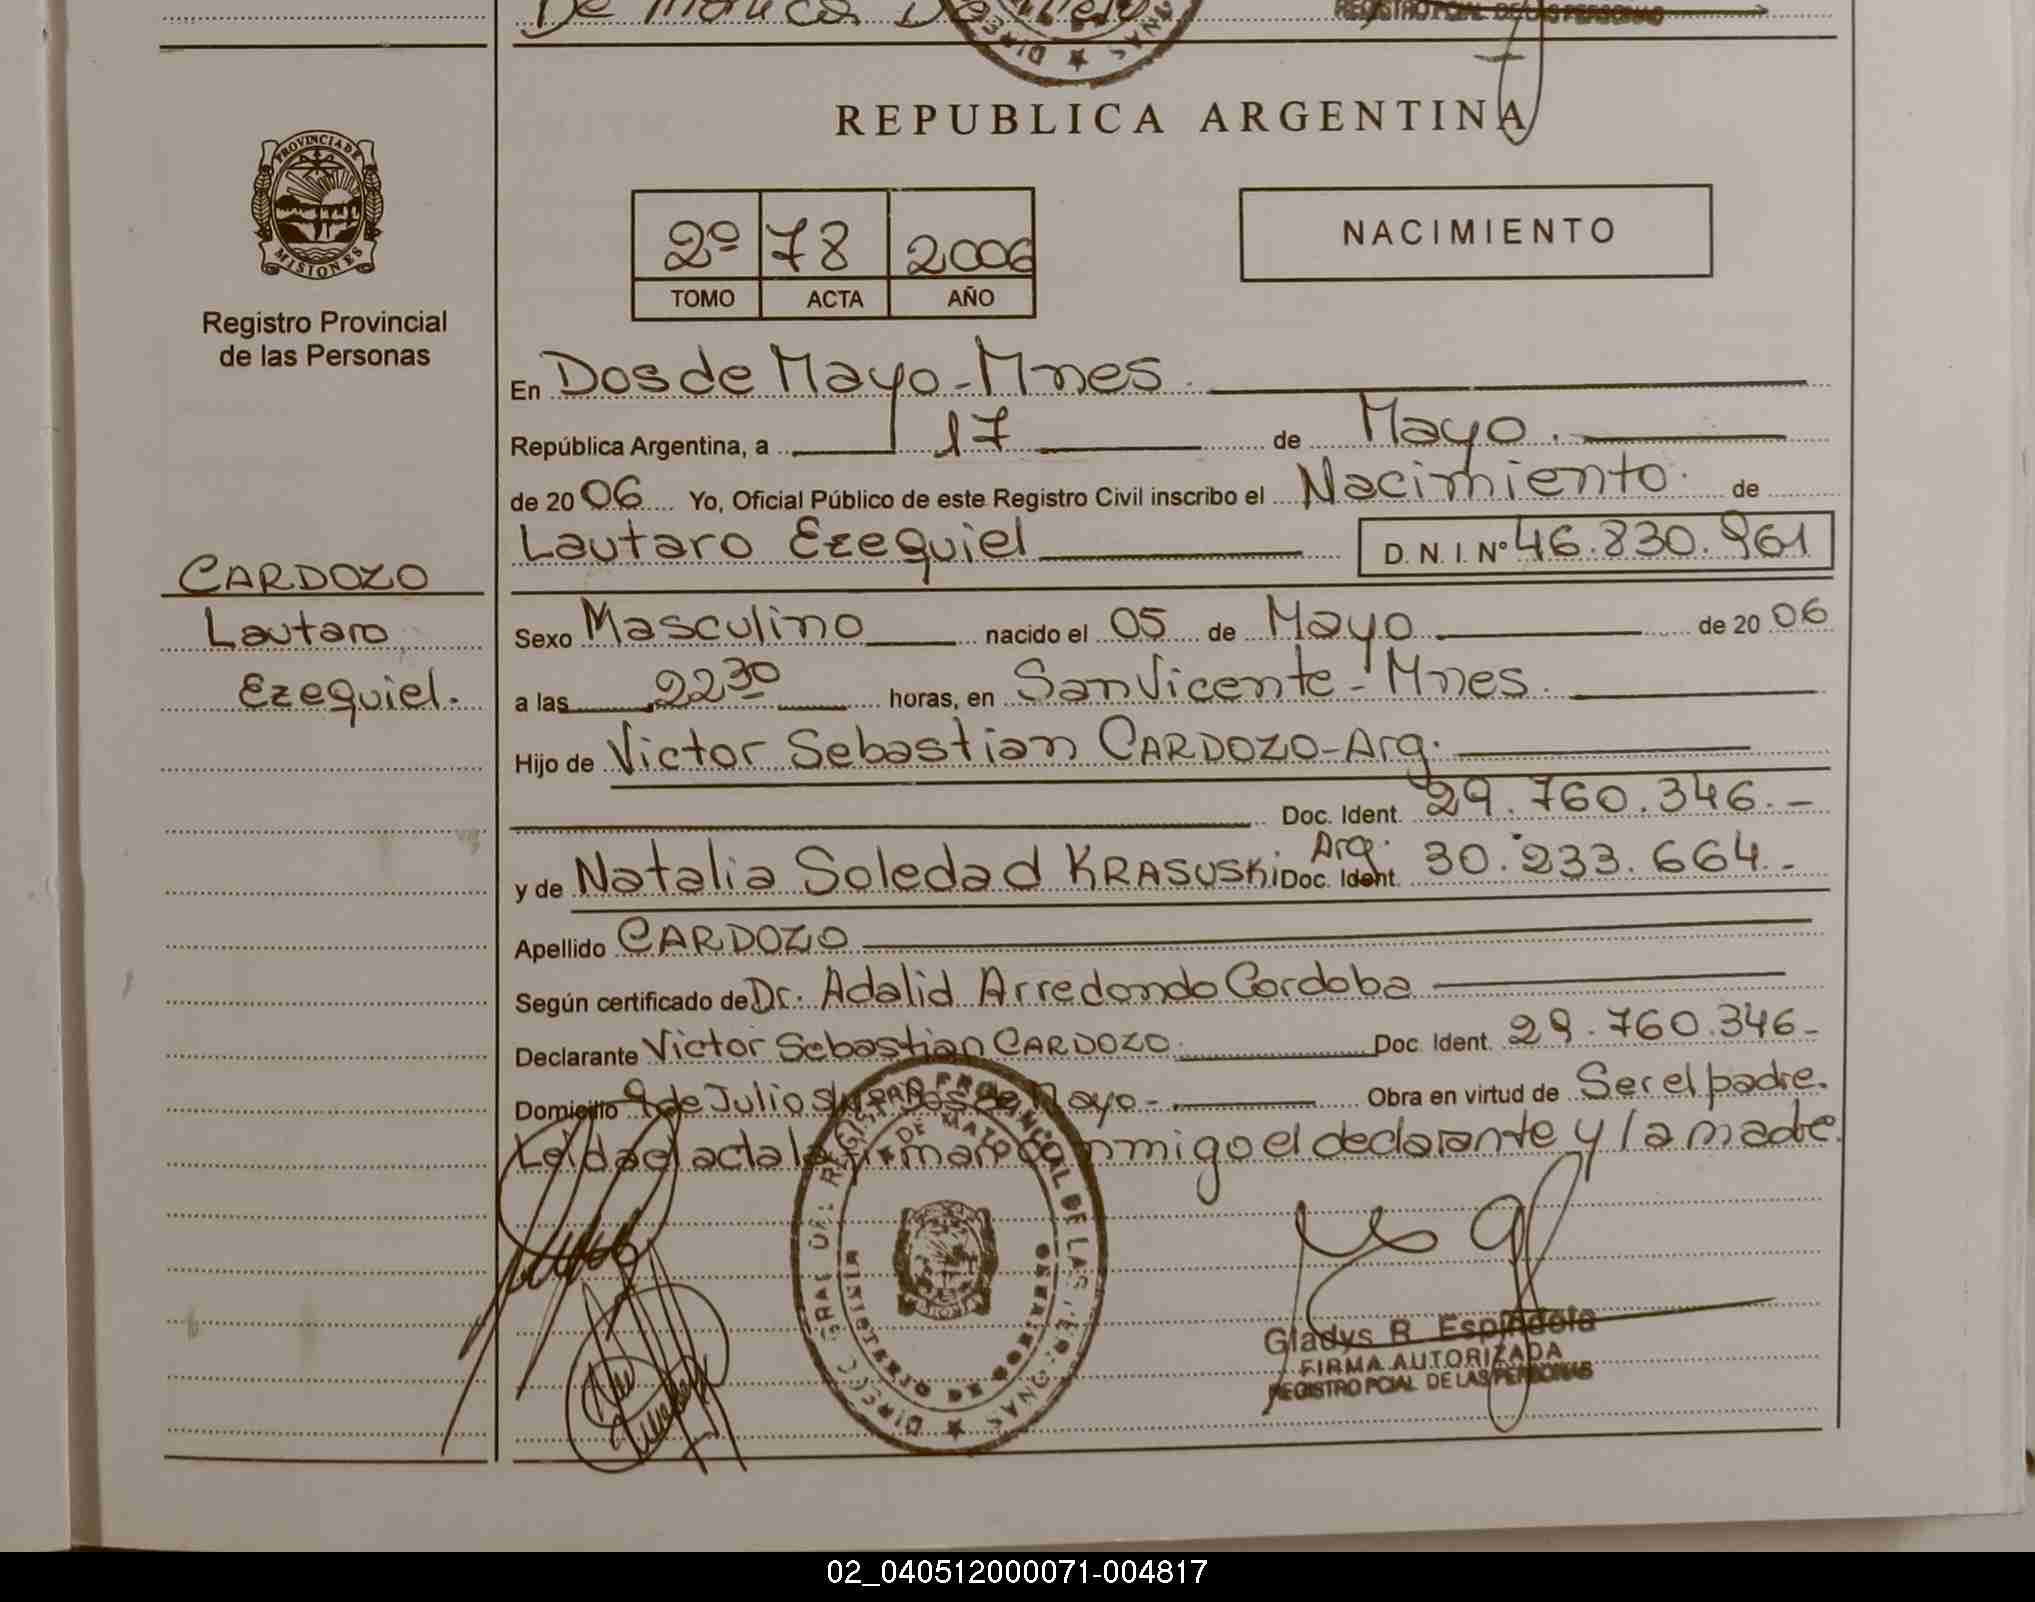 De Monica
REGISTRO PCIAL. DE LAS PERSONAS
DIREC
REPUBLICA ARGENTINA
PROVINCIA DE
MISIONES
Registro Provincial
de las Personas
2º 78 2006
TOMO ACTA AÑO
NACIMIENTO
En Dos de Mayo - Mnes.
República Argentina, a 17 de Mayo.
de 2006 Yo, Oficial Público de este Registro Civil inscribo el Nacimiento. de
Lautaro Ezequiel D. N. I. Nº 46.830.961
CARDOZO
Lautaro
Ezequiel.
Sexo Masculino nacido el 05 de Mayo de 2006
a las 22 30 horas, en San Vicente - Mnes.
Hijo de Victor Sebastian CARDOZO - Arg.
Doc. Ident. 29.760.346.-
y de Natalia Soledad KRASUSKi Arg. Doc. Ident. 30.233.664.-
Apellido CARDOZO
Según certificado de Dr. Adalid Arredondo Cordoba
Declarante Victor Sebastian CARDOZO. Doc. Ident. 29.760.346-
Domicilio 9 de Julio s/n Dos de Mayo - Obra en virtud de Ser el padre.
Leída el acta la firman conmigo el declarante y la madre.
DIRECC. GRAL DEL REGISTRO PROVINCIAL DE LAS PERSONAS
DOS DE MAYO
MINISTERIO DE GOBIERNO
Gladys R. Espindola
FIRMA AUTORIZADA
REGISTRO PCIAL DE LAS PERSONAS
02_040512000071-004817